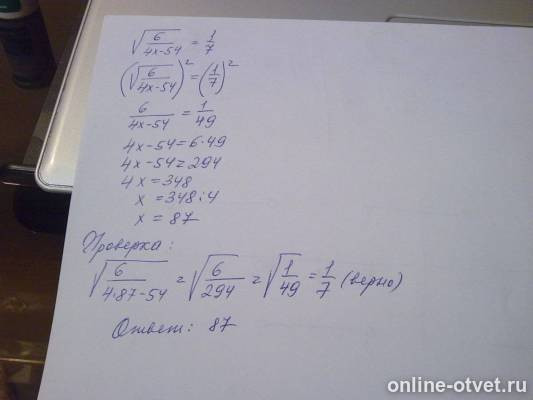 √(6/(4x-54)) = 1/7
(√(6/(4x-54)))² = (1/7)²
6/(4x-54) = 1/49
4x-54=6·49
4x-54=294
4x=348
x=348:4
x=87
Проверка:
√(6/(4·87-54)) = √(6/294) = √(1/49) = 1/7 (верно)
Ответ: 87
online-otvet.ru